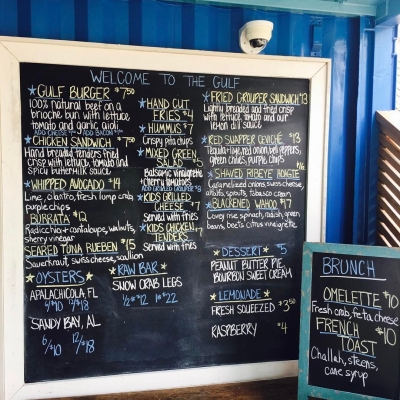 WELCOME TO THE GULF
GULF BURGER $7.50
100% natural beef on a
brioche bun with lettuce
tomato and garlic aioli
ADD CHEESE ADD BACON
CHICKEN SANDWICH 7.50
Hand breaded tenders fried
crisp with lettuce, tomato and
spicy buttermilk sauce
WHIPPED AVOCADO $14
Lime, cilantro, fresh lump crab,
purple chips
BURRATA $12
Radicchio + cantaloupe, walnuts,
sherry vinegar
SEARED TUNA RUEBEN $15
Sauerkraut, swiss cheese, scallion
OYSTERS
APALACHICOLA, FL
6/$10 12/$18
SANDY BAY, AL
6/$10 12/$18
HAND CUT
FRIES $4
HUMMUS $7
Crispy pita chips
MIXED GREEN
SALAD $5
Balsamic vinaigrette
cherry tomatoes
ADD GRILLED GROUPER
KIDS GRILLED
CHEESE $7
Served with fries
KIDS CHICKEN
TENDERS $7
Served with fries
RAW BAR
SNOW CRAB LEGS
1/2# $12 1# $22
FRIED GROUPER SANDWICH $13
Lightly breaded and fried crisp
with lettuce, tomato, and our
lemon dill sauce
RED SNAPPER CEVICHE $13
Tequila + lime, red onion, bell peppers,
green chiles, purple chips
SHAVED RIBEYE HOAGIE
Caramelized onions, swiss cheese,
alfalfa sprouts, tobasco cream
BLACKENED WAHOO $17
beans, beets citrus vinaigrette
DESSERT $5
PEANUT BUTTER PIE,
BOURBON SWEET CREAM
LEMONADE
FRESH SQUEEZED $3.50
RASPBERRY $4
BRUNCH
OMELETTE $10
Fresh crab, feta cheese
FRENCH $10
TOAST
Challah, steens,
cane syrup